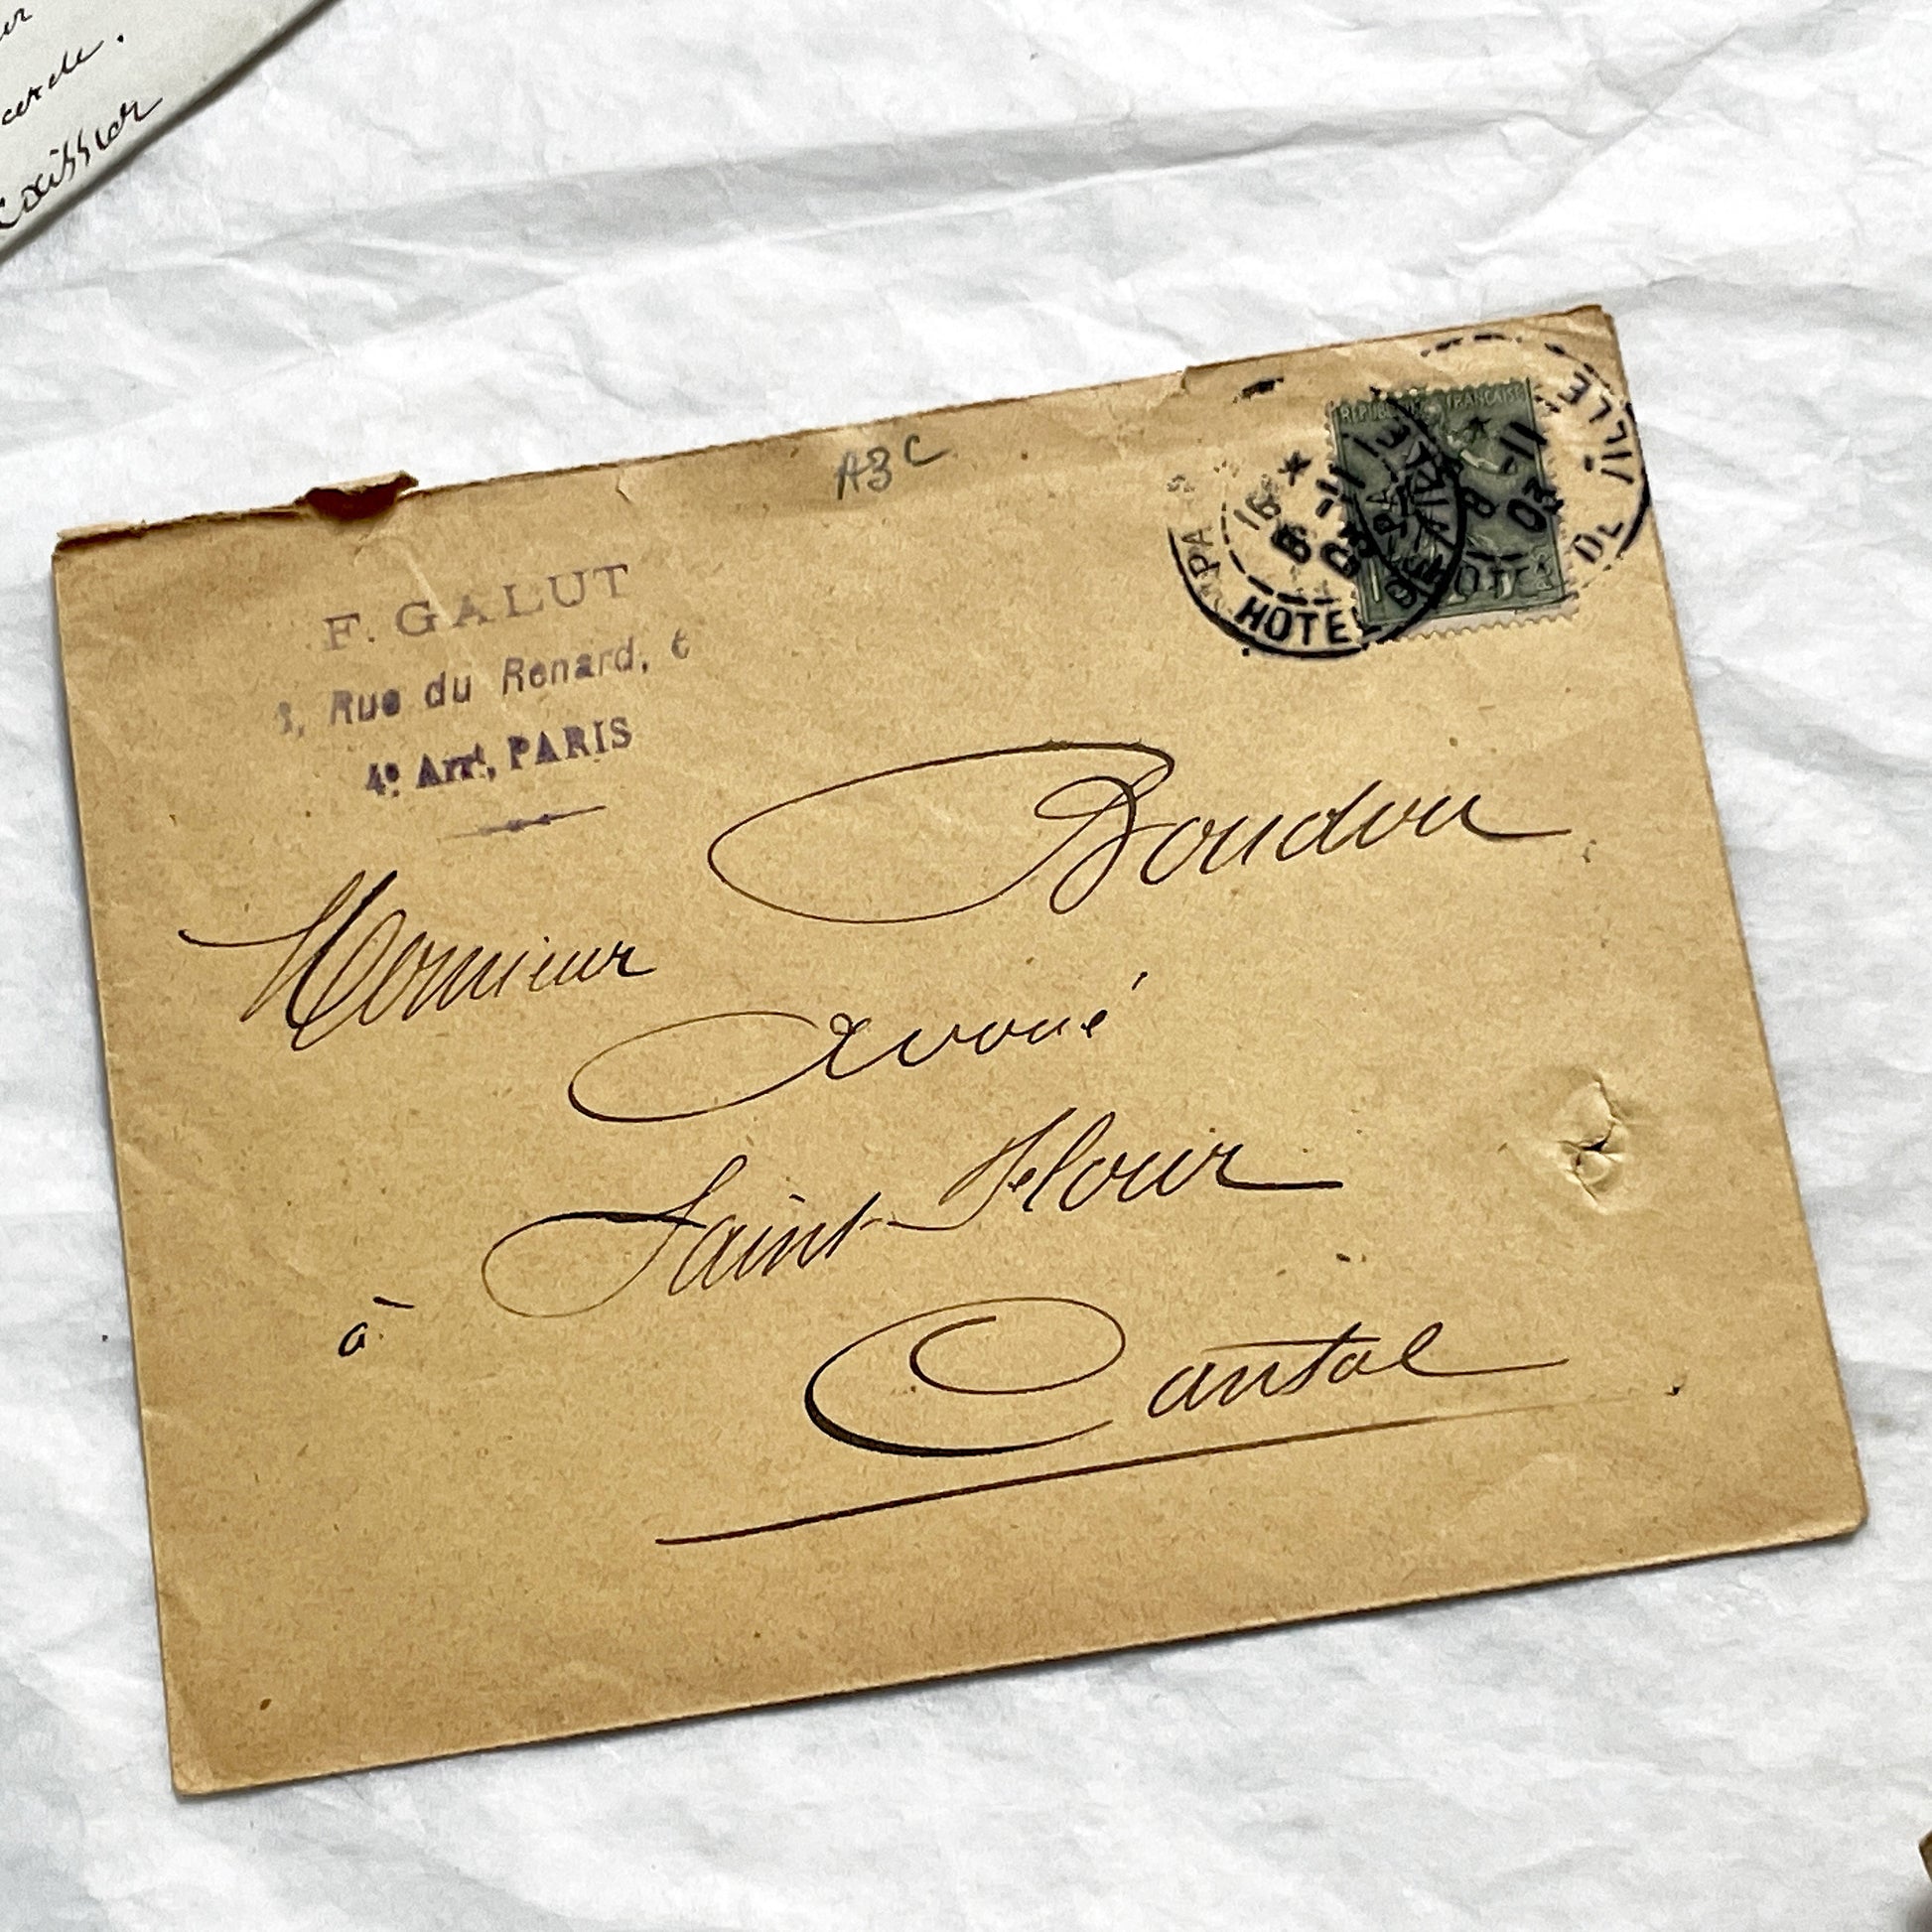 caissier
A3C
F. GALUT
6, Rue du Renard, 6
4e Arrt, PARIS
RÉPUBLIQUE FRANÇAISE
PARIS
HOTEL DE VILLE
8 -11
03
Monsieur Boudon
Avoué
à Saint-Flour
Cantal